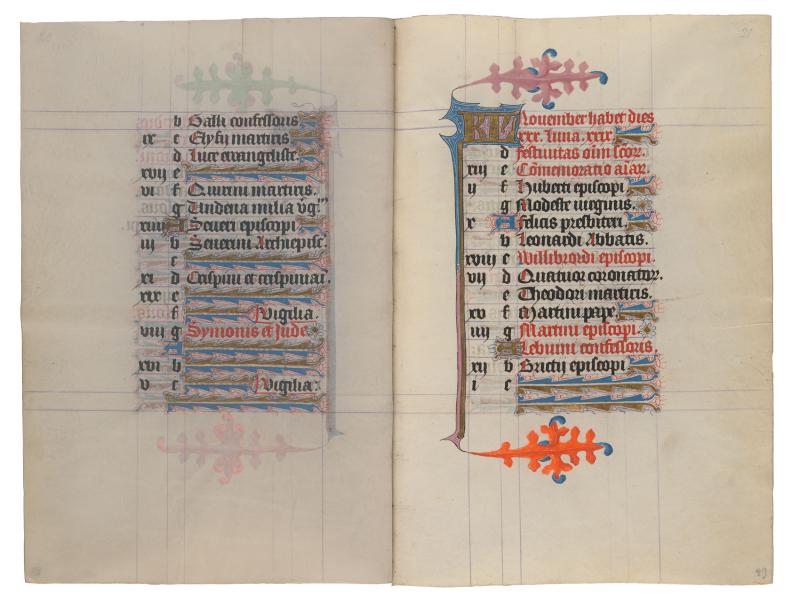 b Galli confessoris
ix c Elysij martiris
d Luce ewangeliste.
xvij e
vi f Quirini martiris.
g Undena milia v̄g̅.
xiiij A Seueri episcopi
iij b Seuerini Archiepisc̄.
c
xi d Crispini et crispiniai.
xix e
f Vigilia.
viij g Symonis et Jude.
A
xvi b
v c Vigilia.
21
KL Nouember habet dies
xxx. luna. xxix.
d festiuitas om̄ scōr.
xiij e Cōmemoratio aīar.
ij f Huberti episcopi.
g Modeste uirginis.
x A Felicis presbiteri.
b Leonardi Abbatis.
xviij c Willibrordi episcopi.
vij d Quatuor coronator.
e Theodori martiris.
xv f Martini pape.
iiij g Martini episcopi.
A Lebuini confessoris.
xij b Brictij episcopi
i c